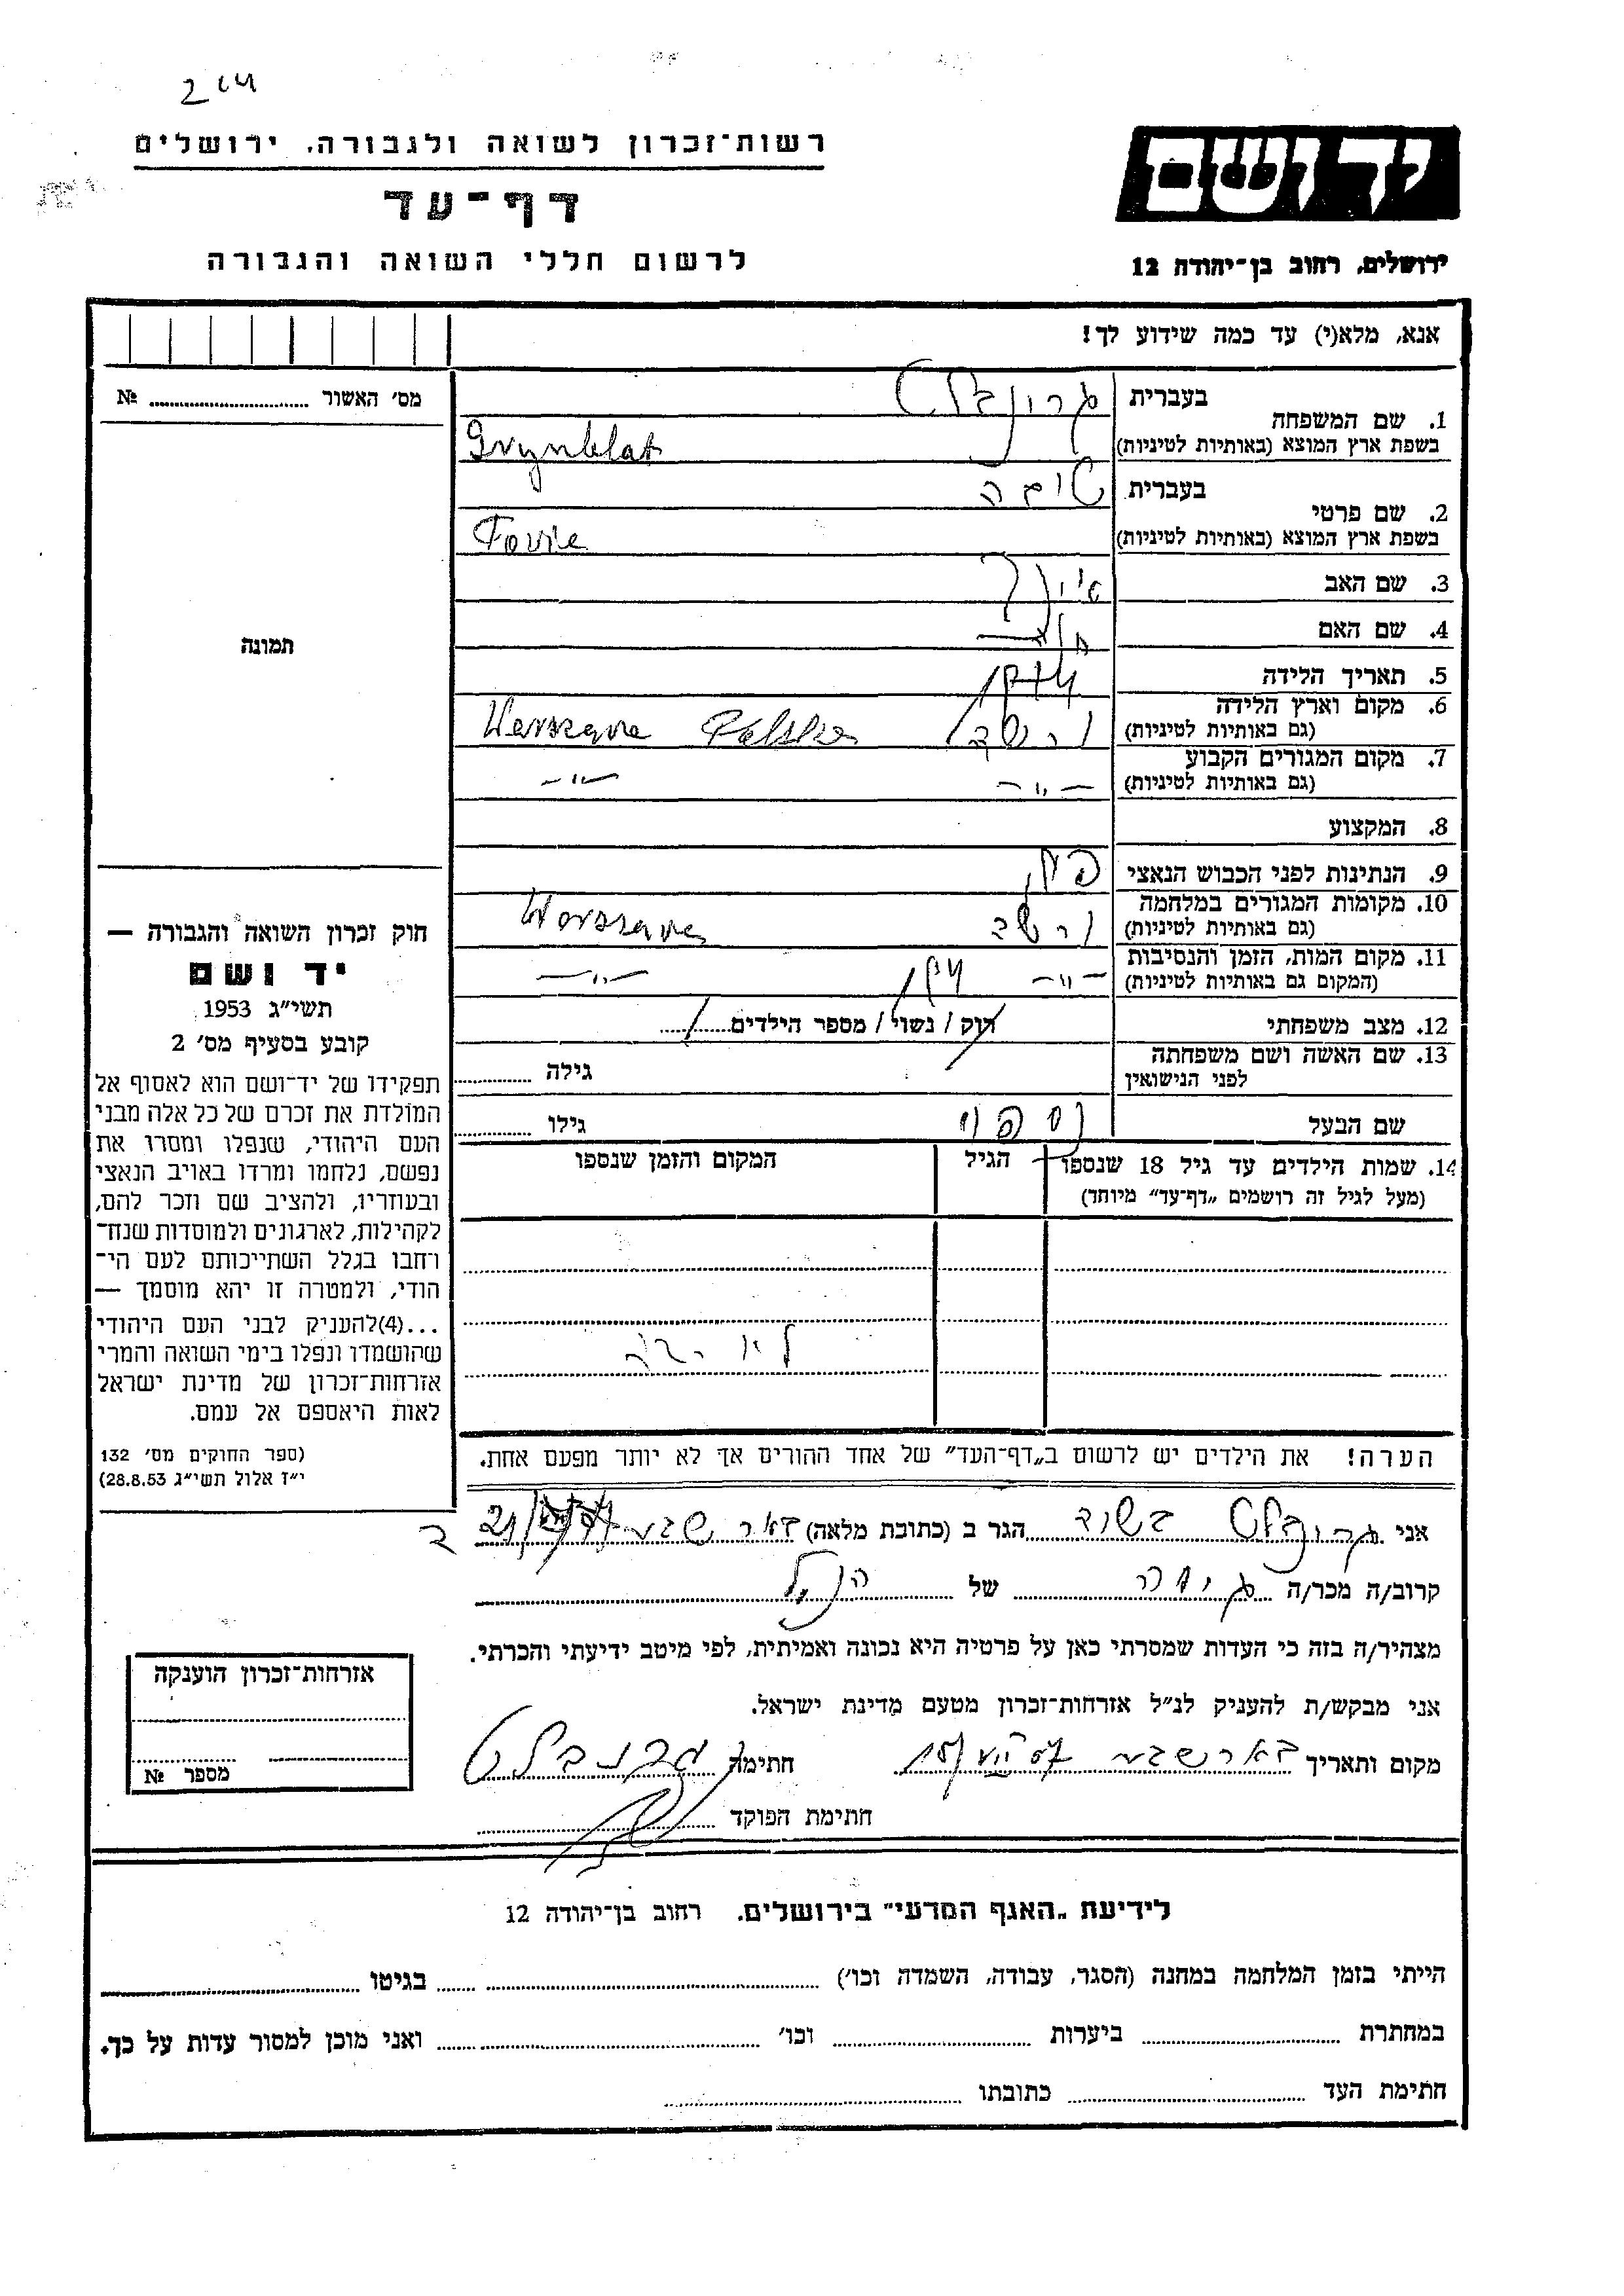 רשות־זכרון לשואה ולגבורה. ירושלים
יד ושם
דף־עד
לרשום חללי השואה והגבורה
ירושלים, רחוב בן־יהודה 12
אנא, מלא(י) עד כמה שידוע לך!
מס׳ האשור № 
תמונה
1. שם המשפחה
בעברית
בשפת ארץ המוצא (באותיות לטיניות) Grynblat
2. שם פרטי
בעברית טובה
בשפת ארץ המוצא (באותיות לטיניות)
3. שם האב
4. שם האם
5. תאריך הלידה
6. מקום וארץ הלידה
(גם באותיות לטיניות) ורשבה Warszawa Polska
7. מקום המגורים הקבוע
(גם באותיות לטיניות) —״— —״—
8. המקצוע
9. הנתינות לפני הכבוש הנאצי
10. מקומות המגורים במלחמה
(גם באותיות לטיניות) ורשבה Warszawa
11. מקום המות, הזמן והנסיבות
(המקום גם באותיות לטיניות) —״— —״—
12. מצב משפחתי רוק / נשוי / מספר הילדים
13. שם האשה ושם משפחתה
לפני הנישואין גילה
שם הבעל גילו
14. שמות הילדים עד גיל 18 שנספו הגיל המקום והזמן שנספו
(מעל לגיל זה רושמים „דף־עד״ מיוחד)
הערה! את הילדים יש לרשום ב„דף־העד״ של אחד ההורים אך לא יותר מפעם אחת.
חוק זכרון השואה והגבורה —
יד ושם
תשי״ג 1953
קובע בסעיף מס׳ 2
תפקידו של יד־ושם הוא לאסוף אל
המולדת את זכרם של כל אלה מבני
העם היהודי, שנפלו ומסרו את
נפשם, נלחמו ומרדו באויב הנאצי
ובעוזריו, ולהציב שם וזכר להם,
לקהילות, לארגונים ולמוסדות שנח־
רחבו בגלל השתייכותם לעם הי־
הודי, ולמטרה זו יהא מוסמך —
...(4)להעניק לבני העם היהודי
שהושמדו ונפלו בימי השואה והמרי
אזרחות־זכרון של מדינת ישראל
לאות היאספם אל עמם.
(ספר החוקים מס׳ 132
י״ז אלול תשי״ג 28.8.53)
אני גרונבלט הגר ב (כתובת מלאה) באר שבע
קרוב/ה מכר/ה של הנ״ל
מצהיר/ה בזה כי העדות שמסרתי כאן על פרטיה היא נכונה ואמיתית, לפי מיטב ידיעתי והכרתי.
אני מבקש/ת להעניק לנ״ל אזרחות־זכרון מטעם מדינת ישראל.
מקום ותאריך באר שבע חתימה
חתימת הפוקד
אזרחות־זכרון הוענקה
מספר №
לידיעת „האגף המדעי״ בירושלים. רחוב בן־יהודה 12
הייתי בזמן המלחמה במחנה (הסגר, עבודה, השמדה וכו׳) בגיטו
במחתרת ביערות וכו׳ ואני מוכן למסור עדות על כך.
חתימת העד כתובתו